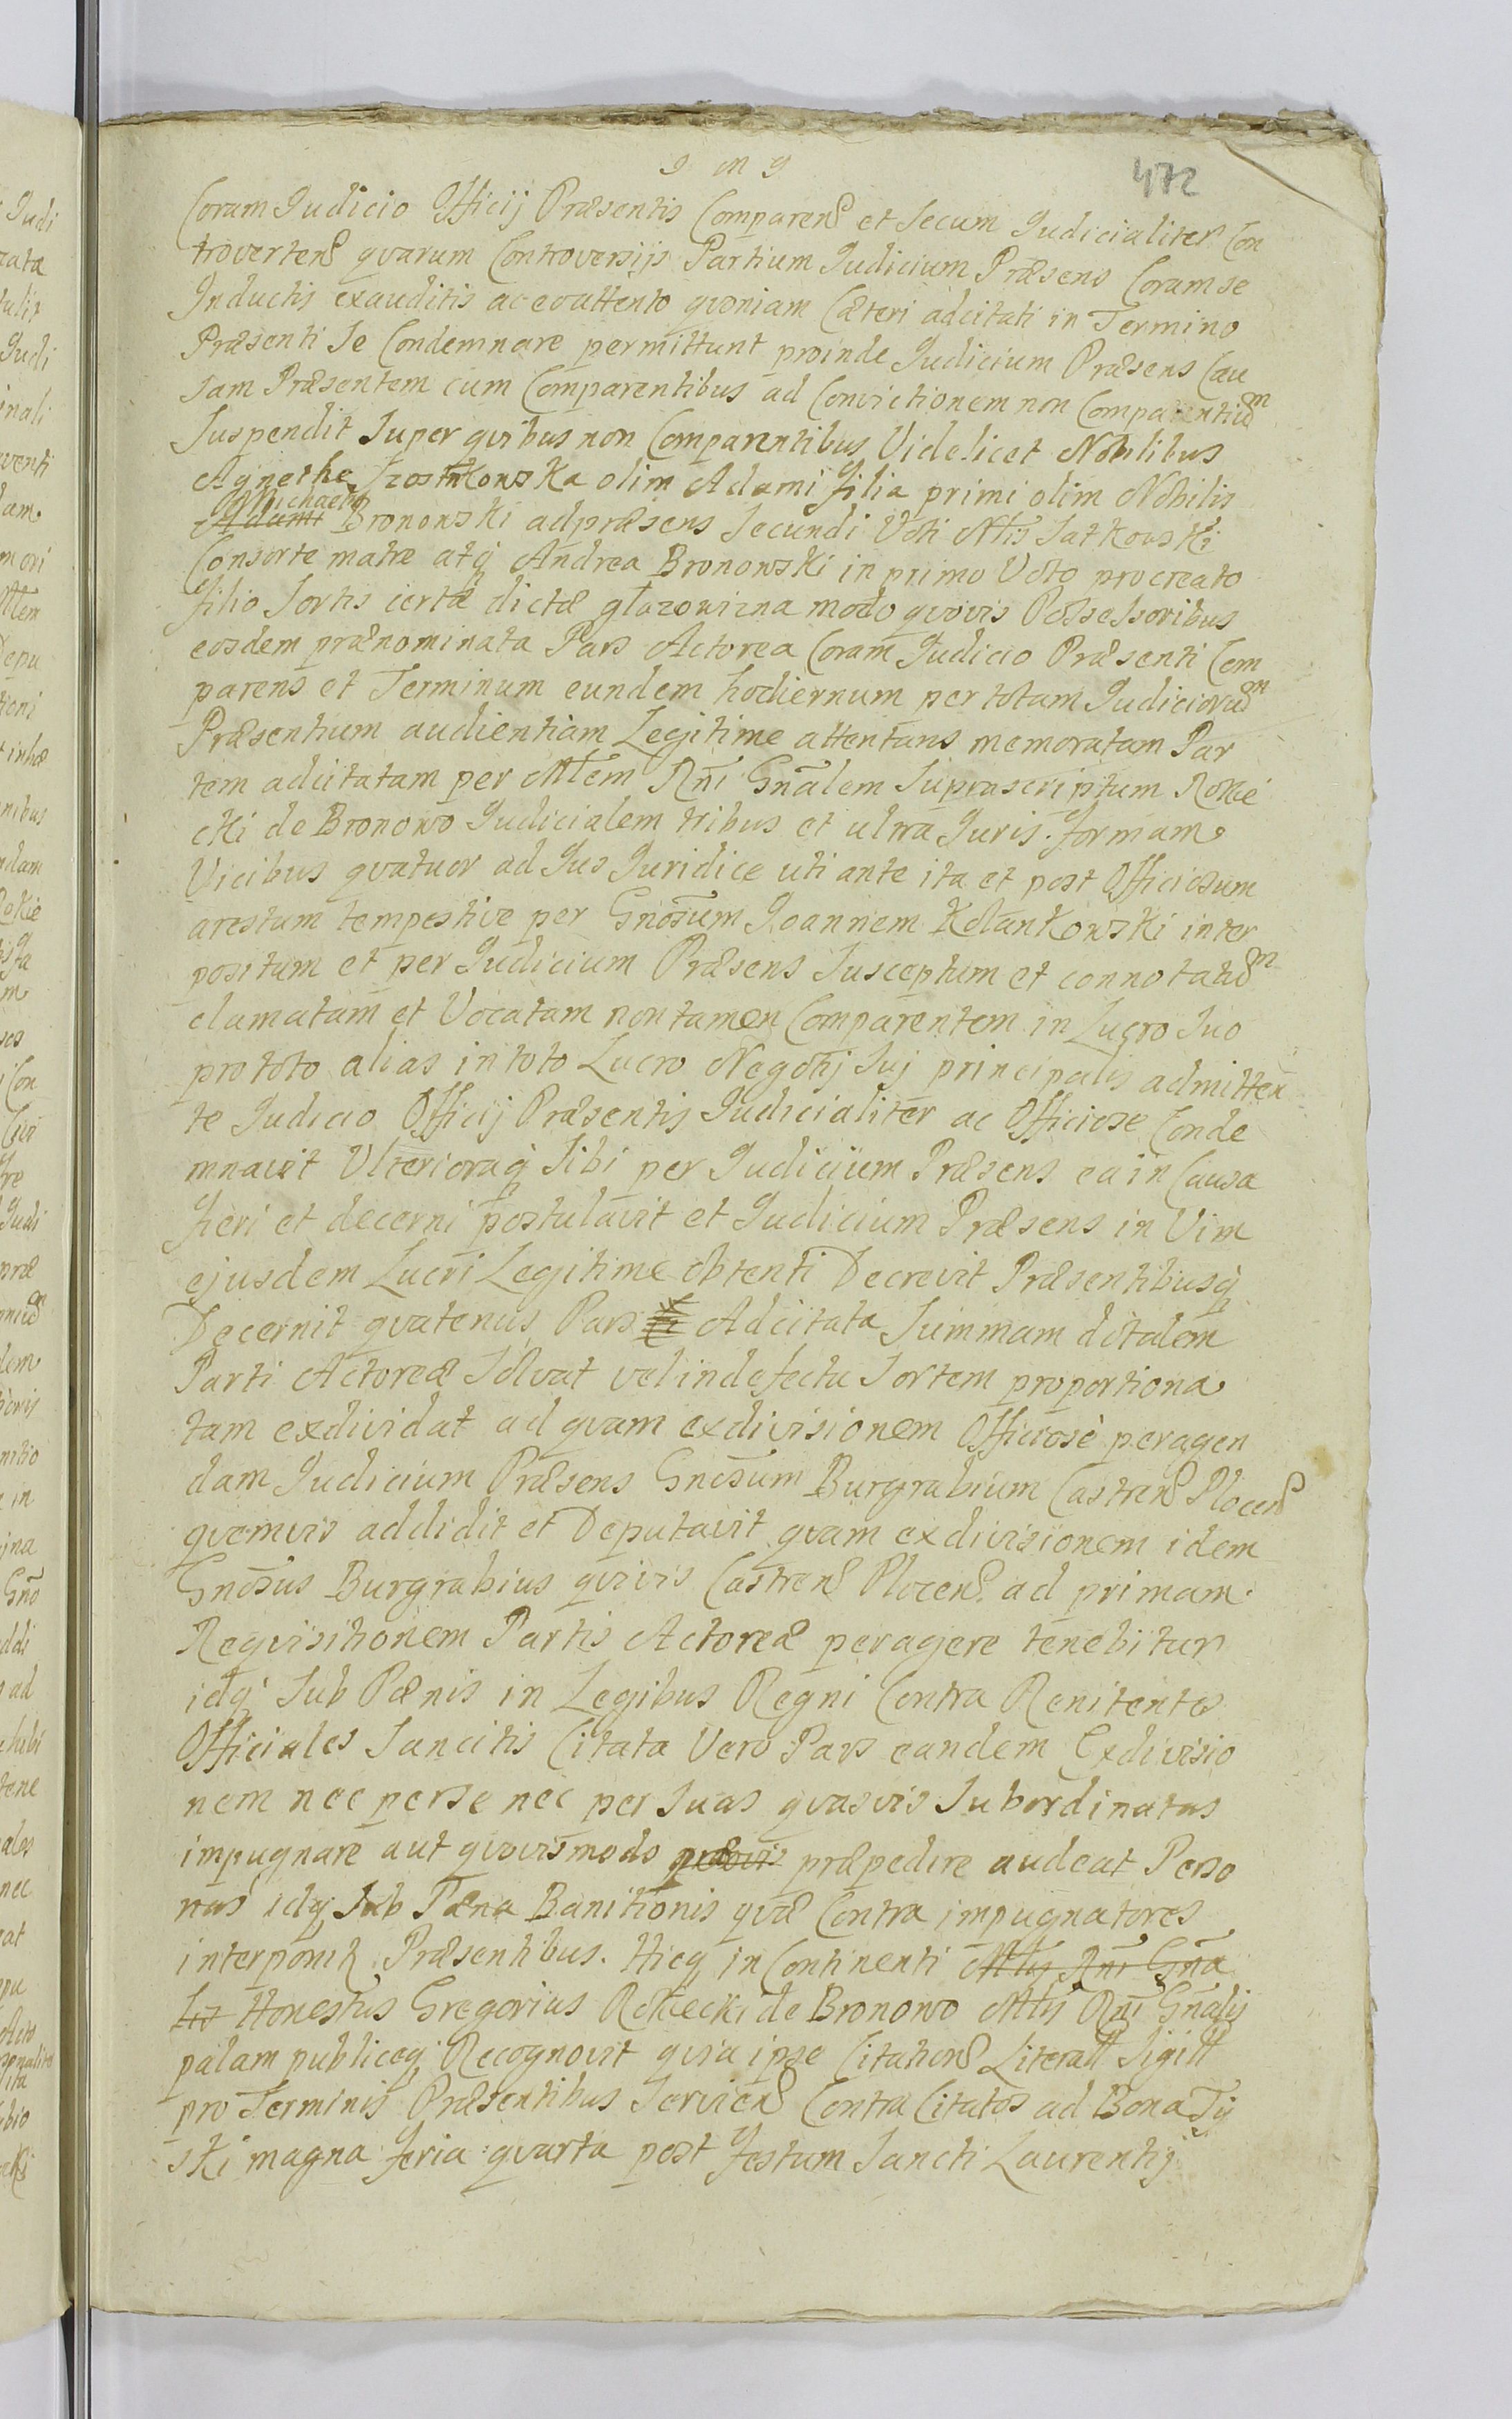 J M J
472
Coram Judicio Officij Præsentis Comparen et Secum Judicialiter Con
troverten qvarum Controversijs Partium Judicium Præsens Coram se
Inductis exauditis ac evattento qvoniam Cæteri adcitati in Termino
Præsenti Se Condemnare permittunt proinde Judicium Præsens Cau
sam Præsentem cum Comparentibus ad Convictionem non Comparentium
Suspendit Super qvibus non Comparentibus Videlicet Nobilibus
Agnethe Szostkowska olim Adami filia primi olim Nobilis
Michaelis
Adami Bronowski ad præsens Secundi Voti Mtis Jatkowski
Consorte matre atq Andrea Bronowski in primo Voto procreato
filio Sortis certæ dictæ głazowizna modo qvovis Possessoribus
eosdem prænominata Pars Actorea Coram Judicio Præsenti Com
parens et Terminum eundem hodiernum per totam Judiciorum
Præsentium audientiam Legitime attentans memoratam Par
tem adcitatam per Mtem Rni Gnalem Suprascriptum Rokie
cki de Bronowo Judicialem tribus et ultra Juris formam
Vicibus qvatuor ad Jus Juridice uti ante ita et post Officiosum
arestum tempestive per Gnosum Joannem Kolankowski inter
positum et per Judicium Præsens Susceptum et connotatum
clamatam et Vocatam non tamen Comparentem in Lucro Suo
pro toto alias in toto Lucro Negotij Sui principalis admitten
te Judicio Officij Præsentis Judicialiter ac Officiose Conde
mnavit Ulterioraq Sibi per Judicium Præsens ea in Causa
fieri et decerni postulavit et Judicium Præsens in Vim
ejusdem Lucri Legitime obtenti Decrevit Præsentibusq
Decernit qvatenus Pars Adcitata Summam dotalem
Parti Actoreæ Solvat vel in defectu Sortem proportiona
tam exdividat ad qvam exdivisionem Officiose peragen
dam Judicium Præsens Gnosum Burgrabium Castren Plocen
qvemvis addidit et Deputavit qvam exdivisionem idem
Gnosus Burgrabius qvivis Castren Plocen ad primam
Reqvisitionem Partis Actoreæ peragere tenebitur
idq Sub Pænis in Legibus Regni Contra Renitentes
Officiales Sancitis Citata Vero Pars eandem Exdivisio
nem nec per se nec per Suas qvasvis Subordinatas
impugnare aut qvovismodo præpedire audeat Perso
nas idq Sub Pæna Banitionis qvæ Contra impugnatores
interponitur Præsentibus. Hicq in Continenti Mtis Rni Gna
lis Honestus Gregorius Rokiecki de Bronowo Mtis Rni Gnalis
palam publiceq Recognovit qvia ipse Citation Literall Sigill
pro Terminis Præsentibus Servien Contra Citatos ad Bona Ty
ski magna feria qvarta post festum Sancti Laurentij